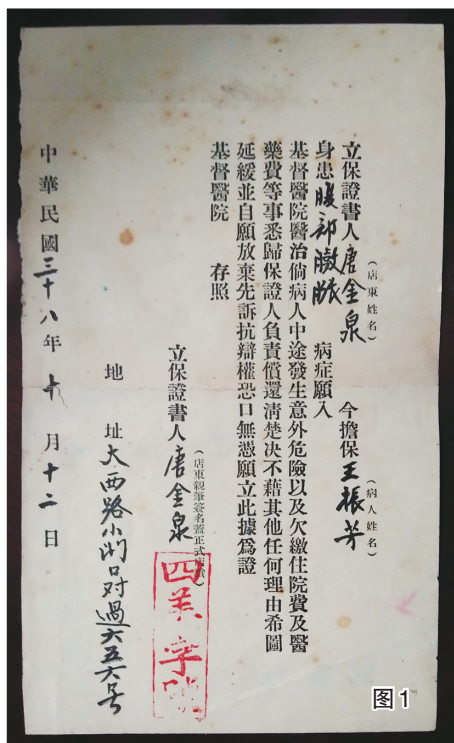 立保證書人唐金泉(店東姓名) 今擔保王振芳(病人姓名)
身患腹部膨脹 病症願入
基督醫院醫治倘病人中途發生意外危險以及欠繳住院費及醫
藥費等事悉歸保證人負責償還清楚决不藉其他任何理由希圖
延緩並自願放棄先訴抗辯權恐口無憑願立此據爲證
基督醫院 存照
立保證書人唐金泉(店東親筆簽名蓋正式店章)
四美
地 址大西路小闸口对過六五六号
中華民國三十八年十月十二日
图1